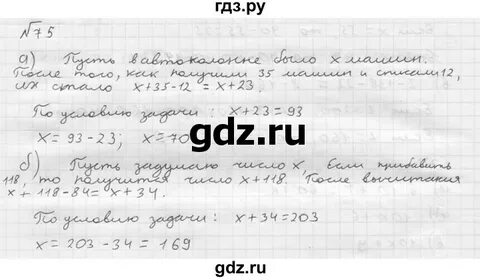 гдз.ру
№75
а) Пусть в автоколонне было x машин.
После того, как получили 35 машин и списали 12,
их стало x+35-12 = x+23.
По условию задачи : x+23=93
x= 93-23; x=70
gdz.ru
б) Пусть задумано число x, если прибавить
118, то получится число x+118. После вычитания
x + 118-84= x+34.
По условию задачи : x+34=203
x= 203-34 = 169
гдз.ру